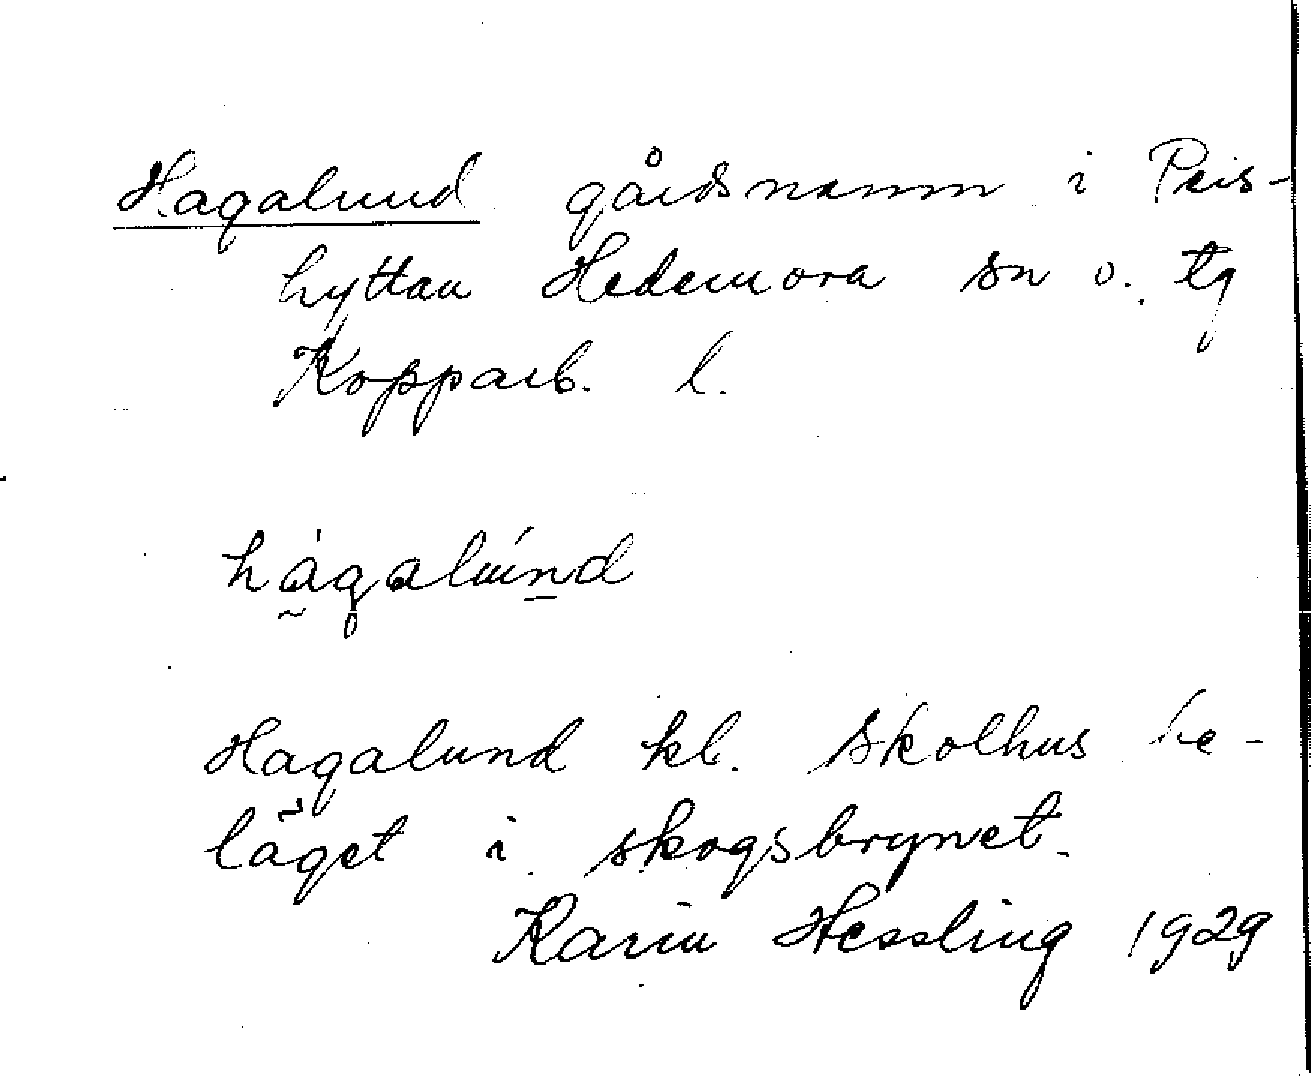 Hagalund gårdsnamn i Pers-
hyttan Hedemora sn o. tg
Kopparb. l.
hágalúnd
Hagalund kl. skolhus be-
läget i skogsbrynet.
Karin Hessling 1929